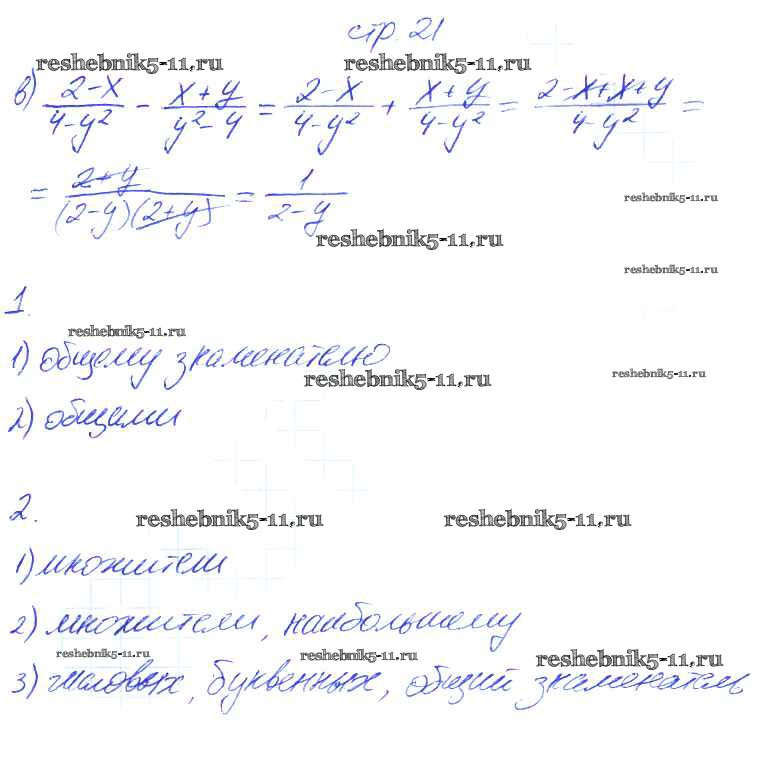 стр. 21
reshebnik5-11.ru reshebnik5-11.ru
в) (2-x)/(4-y²) - (x+y)/(y²-4) = (2-x)/(4-y²) + (x+y)/(4-y²) = (2-x+x+y)/(4-y²) =
reshebnik5-11.ru
= (2+y)/((2-y)(2+y)) = 1/(2-y)
reshebnik5-11.ru
reshebnik5-11.ru
1.
reshebnik5-11.ru
1) общему знаменателю
reshebnik5-11.ru reshebnik5-11.ru
2) общими
2.
reshebnik5-11.ru reshebnik5-11.ru
1) множители
2) множители, наибольшему
reshebnik5-11.ru reshebnik5-11.ru reshebnik5-11.ru
3) числовых, буквенных, общий знаменатель